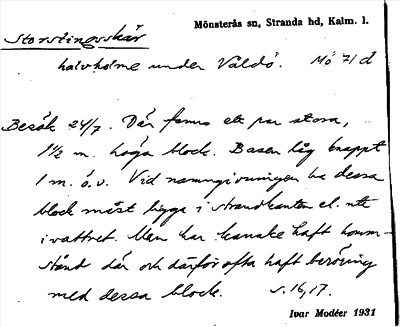 Mönsterås sn, Stranda hd, Kalm. l.
Storstingsskär
halvholme under Valdö. Mö 71 d
Besök 24/7. Där fanns ett par stora,
1 1/2 m. höga block. Basen låg knappt
1 m. ö. v. Vid namngivningen ha dessa
block måst ligga i strandkanten el. ute
i vattnet. Man har kanske haft komm-
stånd där och därför ofta haft beröring
med dessa block. s. 16, 17.
Ivar Modéer 1931